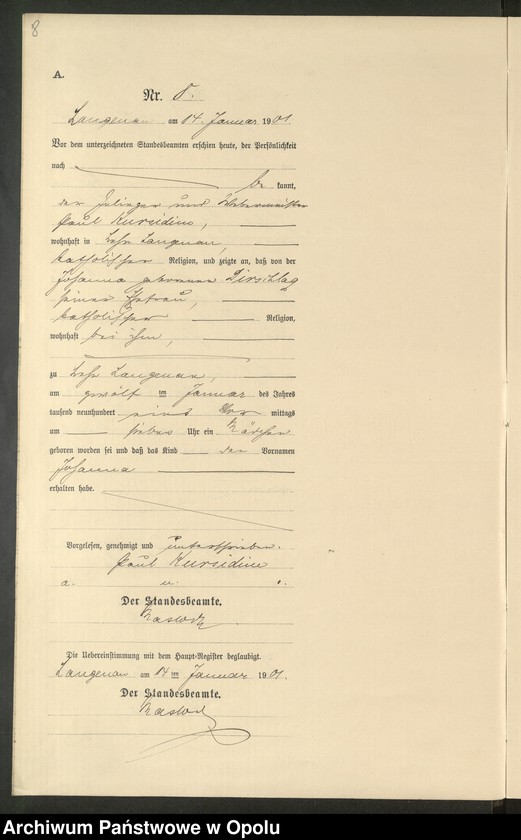 8
A.
Nr. 8.
Langenau am 14. Januar 1901.
Vor dem unterzeichneten Standesbeamten erschien heute, der Persönlichkeit
nach
be kannt,
der und Webermeister
Paul Kursidim,
wohnhaft in Langenau,
katholischer Religion, und zeigte an, daß von der
Johanna geborenen Dirschlag
seiner Ehefrau,
katholischer Religion,
wohnhaft bei ihm,
zu Langenau,
am zwölf ten Januar des Jahres
tausend neunhundert eins Vor mittags
um sieben Uhr ein Mädchen
geboren worden sei und daß das Kind den Vornamen
Johanna
erhalten habe.
Vorgelesen, genehmigt und unterschrieben.
Paul Kursidim
a. u. s.
Der Standesbeamte.
Die Uebereinstimmung mit dem Haupt-Register beglaubigt.
Langenau am 14 ten Januar 1901.
Der Standesbeamte.
Archiwum Państwowe w Opolu